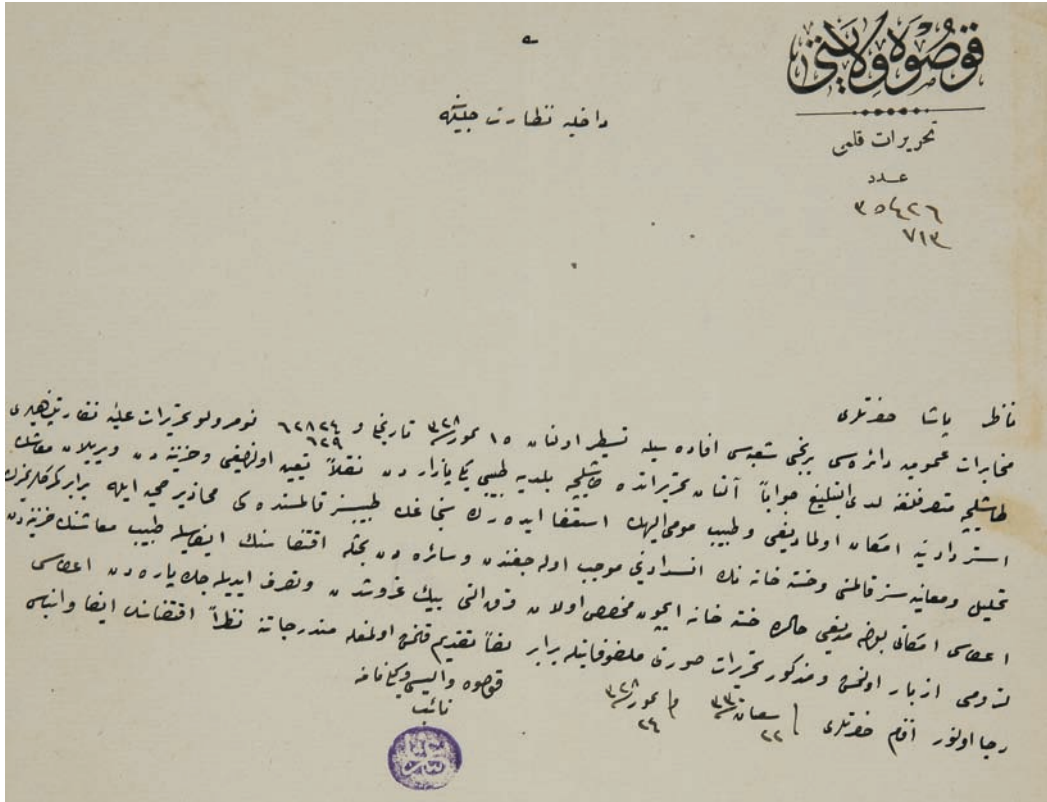 قوصوه ولايتى
تحريرات قلمى
عدد
٣٥٤٢٦
٧١٣
داخليه نظارت جليله‌سنه
ناظر پاشا حضرتلرى
مخابرات عموميه دائره‌سى برنجى شعبه‌سى افاده‌سيله تسطير اولنان ١٥ تموز ٣٢٨ تاريخلى و ٦٢٨٢٤ ٦٢٩ نومرولو تحريرات عليه نظارتپناهيلرى
طاشليجه متصرفلغنه لدى التبليغ جواباً آلنان تحريراتده طاشليجه بلديه طبيبى يكى پازاردن نقلاً تعيين اولنديغى وخزينه‌دن ويريلان معاشك
استردادينه امكان اولماديغى وطبيب مومى اليهك استعفا ايده‌رك سنجاغك طبيبسز قالمسنده‌كى محاذير صحيه ايله برابر
تحليل ومعاينه‌سز قالمنى وخسته خانه‌نك انسدادينى موجب اوله‌جغندن وسائره‌دن بحثله اقتضاسنك ايفاسيله طبيب معاشنك خزينه‌دن
اعطاسى امكانى حالده خسته خانه ايچون مخصص اولان اون التى بيك غروشدن وتصرف ايديله‌جك پاره‌دن اعطاسى
لزومى ازبار اولنمش ومذكور تحريرات صورتى ملفوفاتيله برابر لفاً تقديم قلنمش اولمغله مندرجاتنه نظراً اقتضاسنك ايفا وانباسى
رجا اولنور افندم حضرتلرى ٢٢ شعبان ٣٣٠ ٢٤ تموز ٣٢٨
قوصوه واليسى وكيلى نامنه
نائب